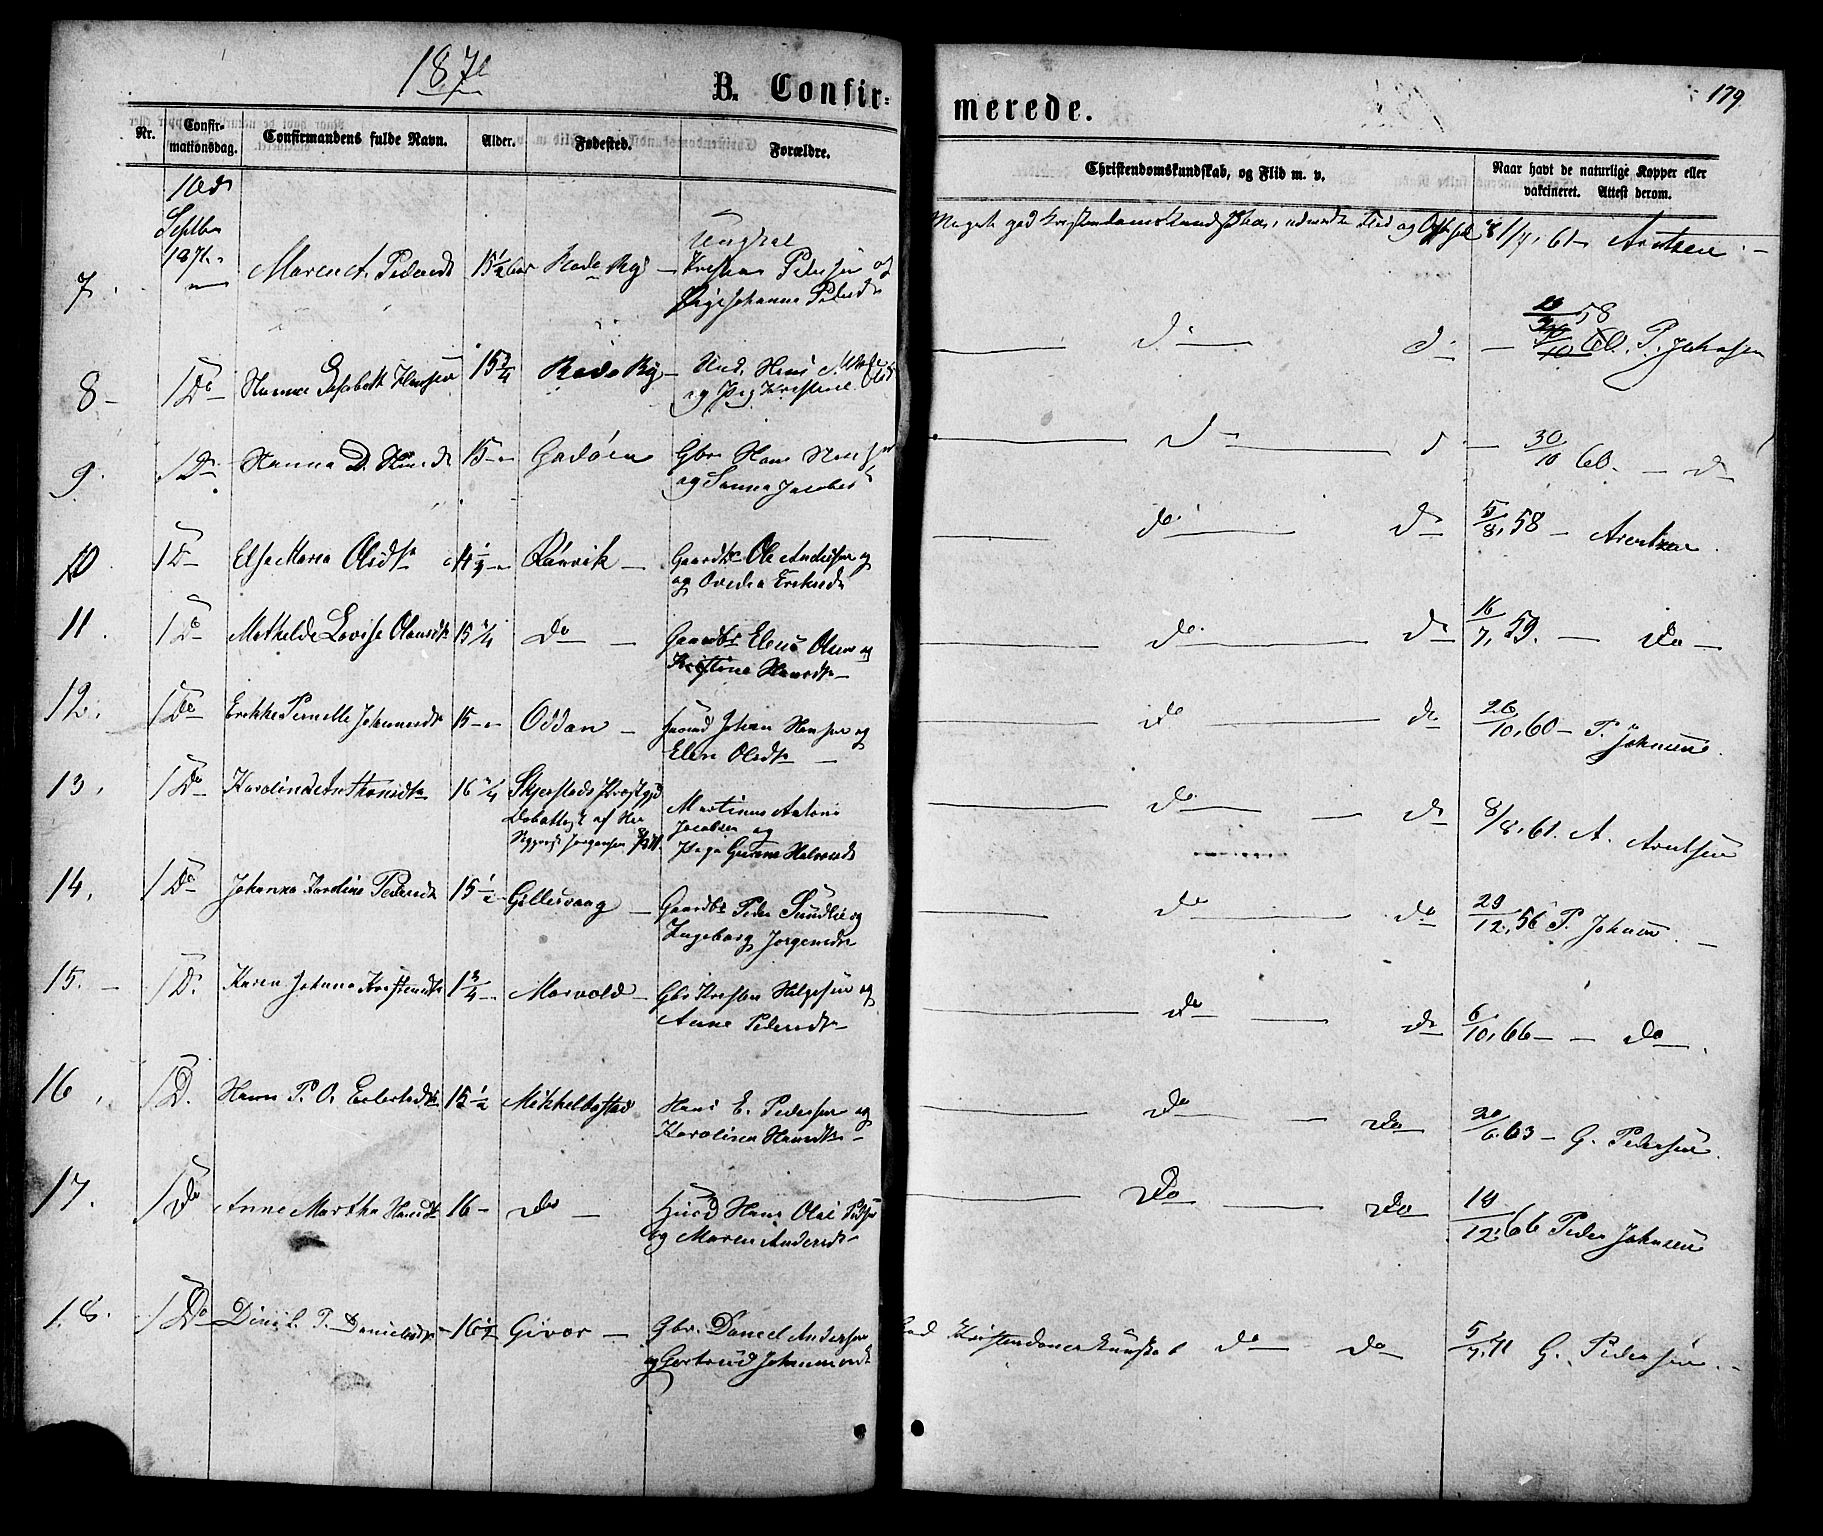 1871
B. Confir-
merede.
179
Nr.
Confir-
mationsdag.
Confirmandens fulde Navn.
Alder.
Fødested.
Forældre.
Christendomskundskab, og Flid m. v.
Naar havt de naturlige Kopper eller
vakcineret. Attest derom.
10de
Septbr
1871
7. Maren A. Pedersd 15 1/2 Rødø Pgj Ungkal
Kristian Pedersen og
Pige Johanna Pedersd
Meget god Kristendomskundskab, udmærket Flid og Opførsel 8/7, 61 Arntsen
8 Do Hanna Elisabeth Hansen 15 3/4 Rødø Pgj Und. Hans
og Pig Kristine
D D 58
30/10 60. P. Johnsen
9. Do Hanna D. Hansd 15 Gadøen Gbr Hans Hansen
og Sanna Jacobsd
D D 30/10 60. D
10 Do Else Maria Olsdtr 14 1/2 Rånvik Gaardbr Ole Andersen og
og Ovedia Eriksdtr
Do Do 5/8, 58 Arentzen
11. Do Mathilde Lovise Olausdtr 15 1/4 Do Gaardbr Elias Olsen og
Kristine Hansdtr
Do Do 16/7, 59. Do
12. Do Erikke Pernelle Johannesdtr 15 Oddan Huusmd Johan Hansen og
Elen Olsdtr
Do Do 26/10, 60 P. Johnsen.
13. Do Karoline Anthonsdtr 16 1/4 Skjerstads Præstgjd
Martinus Antoni
Jacobsen og
Do Do 8/8, 61. A. Arntsen
14. Do Johanna Karoline Pedersdtr 15 1/2 Gillesvaag Gaardbr Peder Sundlie og
Ingeborg Jørgensdtr
Do Do 29/12, 56 P. Johnsen.
15. Do. Karen Johanna Kristensdtr 1 3/4 Morvold Gbr Kristen Helgesen og
Anne Pedersdtr
Do Do 6/10, 66 Do
16. D. Hanna P. O. 15 1/2 Mikkelbostad Hans E. Pedersen og
Karolina Hansdtr
Do Do 20/6, 63 G. Pedersen.
17. Do Anne Martha Hansdtr 16 Do Huusmd Hans Olai
og Maren Andersdtr
Do Do 18/12, 66 Peder Johnsen
18. Do P. Danielsdtr 16 1/2 Givær Gbr. Daniel Andersen
og Gertrud Johannesdtr
God Kristendomskundskab Do Do 5/7, 71 G. Pedersen.